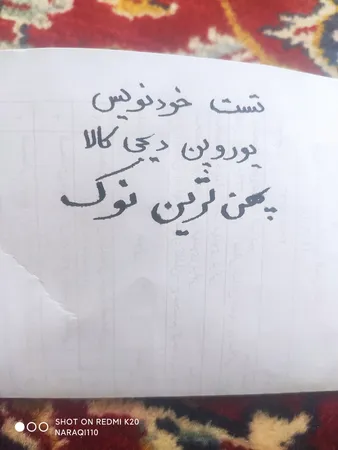 تست خودنویس
یوروپن دیجی کالا
پهن ترین نوک
SHOT ON REDMI K20
NARAQI110